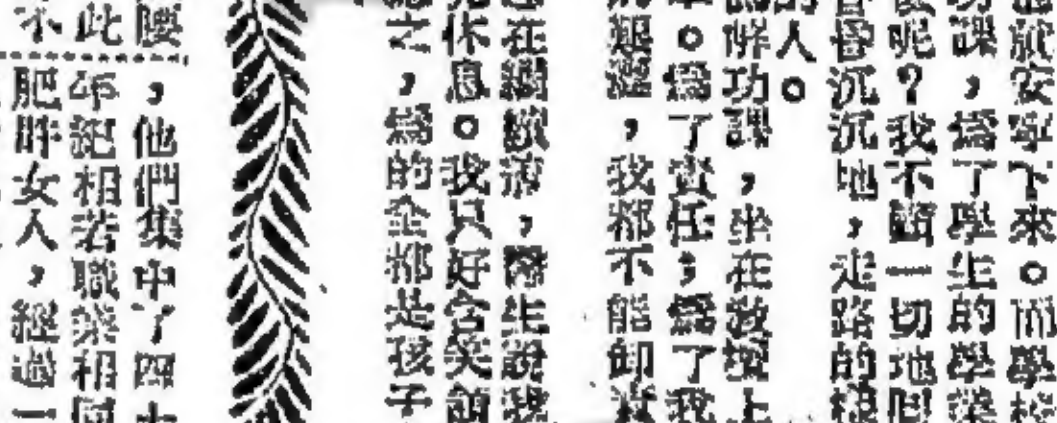 安寧下來。而學校
功課，爲了學生的學業
呢？我不顧一切地但
昏沉沉地，走路的
的人。
解功課，坐在教壇上
。爲了責任，爲了我
艱，我都不能卸責
在繼續，醫生說我
休息。我只好含笑領
之，爲的全都是孩子
腰
此
不
，他們集中了四十
年紀相若職業相同
肥胖女人，經過一